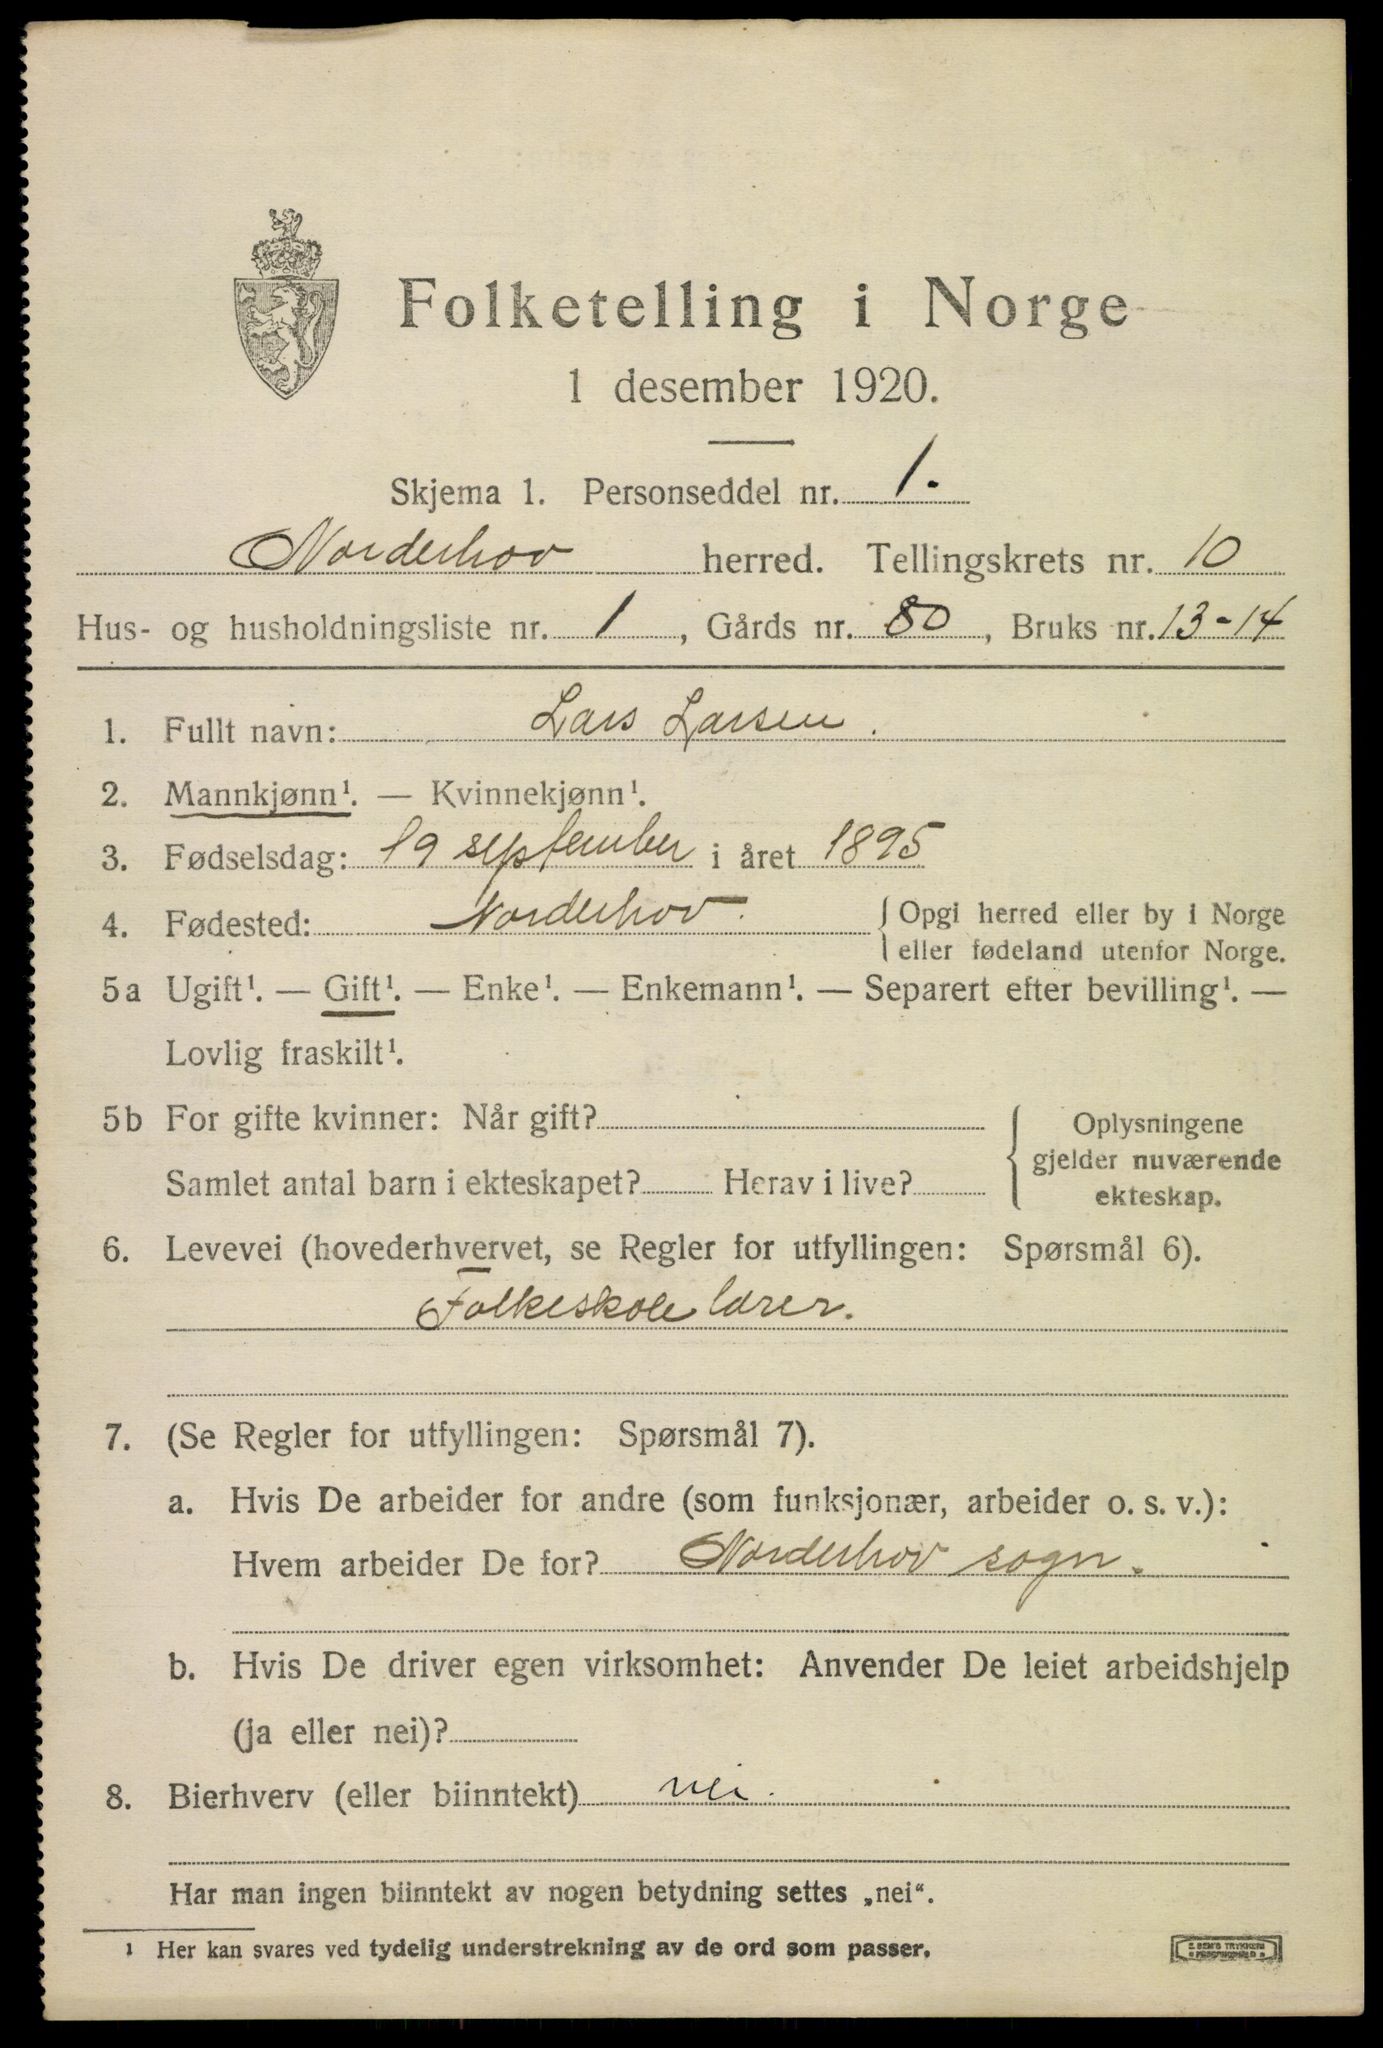 Folketelling i Norge
1 desember 1920.
Skjema 1. Personseddel nr. 1.
Norderhov herred. Tellingskrets nr. 10
Hus- og husholdningsliste nr. 1, Gårds nr. 80, Bruks nr. 13-14
1. Fullt navn: Lars Larsen.
2. Mannkjønn¹. — Kvinnekjønn¹.
3. Fødselsdag: 19 september i året 1895
4. Fødested: Norderhov. { Opgi herred eller by i Norge
eller fødeland utenfor Norge.
5a Ugift¹. — Gift¹. — Enke¹. — Enkemann¹. — Separert efter bevilling¹. —
Lovlig fraskilt¹.
5b For gifte kvinner: Når gift?
Samlet antal barn i ekteskapet? Herav i live?
Oplysningene
gjelder nuværende
ekteskap.
6. Levevei (hovederhvervet, se Regler for utfyllingen: Spørsmål 6).
Folkeskolelærer.
7. (Se Regler for utfyllingen: Spørsmål 7).
a. Hvis De arbeider for andre (som funksjonær, arbeider o. s. v.):
Hvem arbeider De for? Norderhov sogn.
b. Hvis De driver egen virksomhet: Anvender De leiet arbeidshjelp
(ja eller nei)?
8. Bierhverv (eller biinntekt) nei.
Har man ingen biinntekt av nogen betydning settes „nei“.
1 Her kan svares ved tydelig understrekning av de ord som passer.